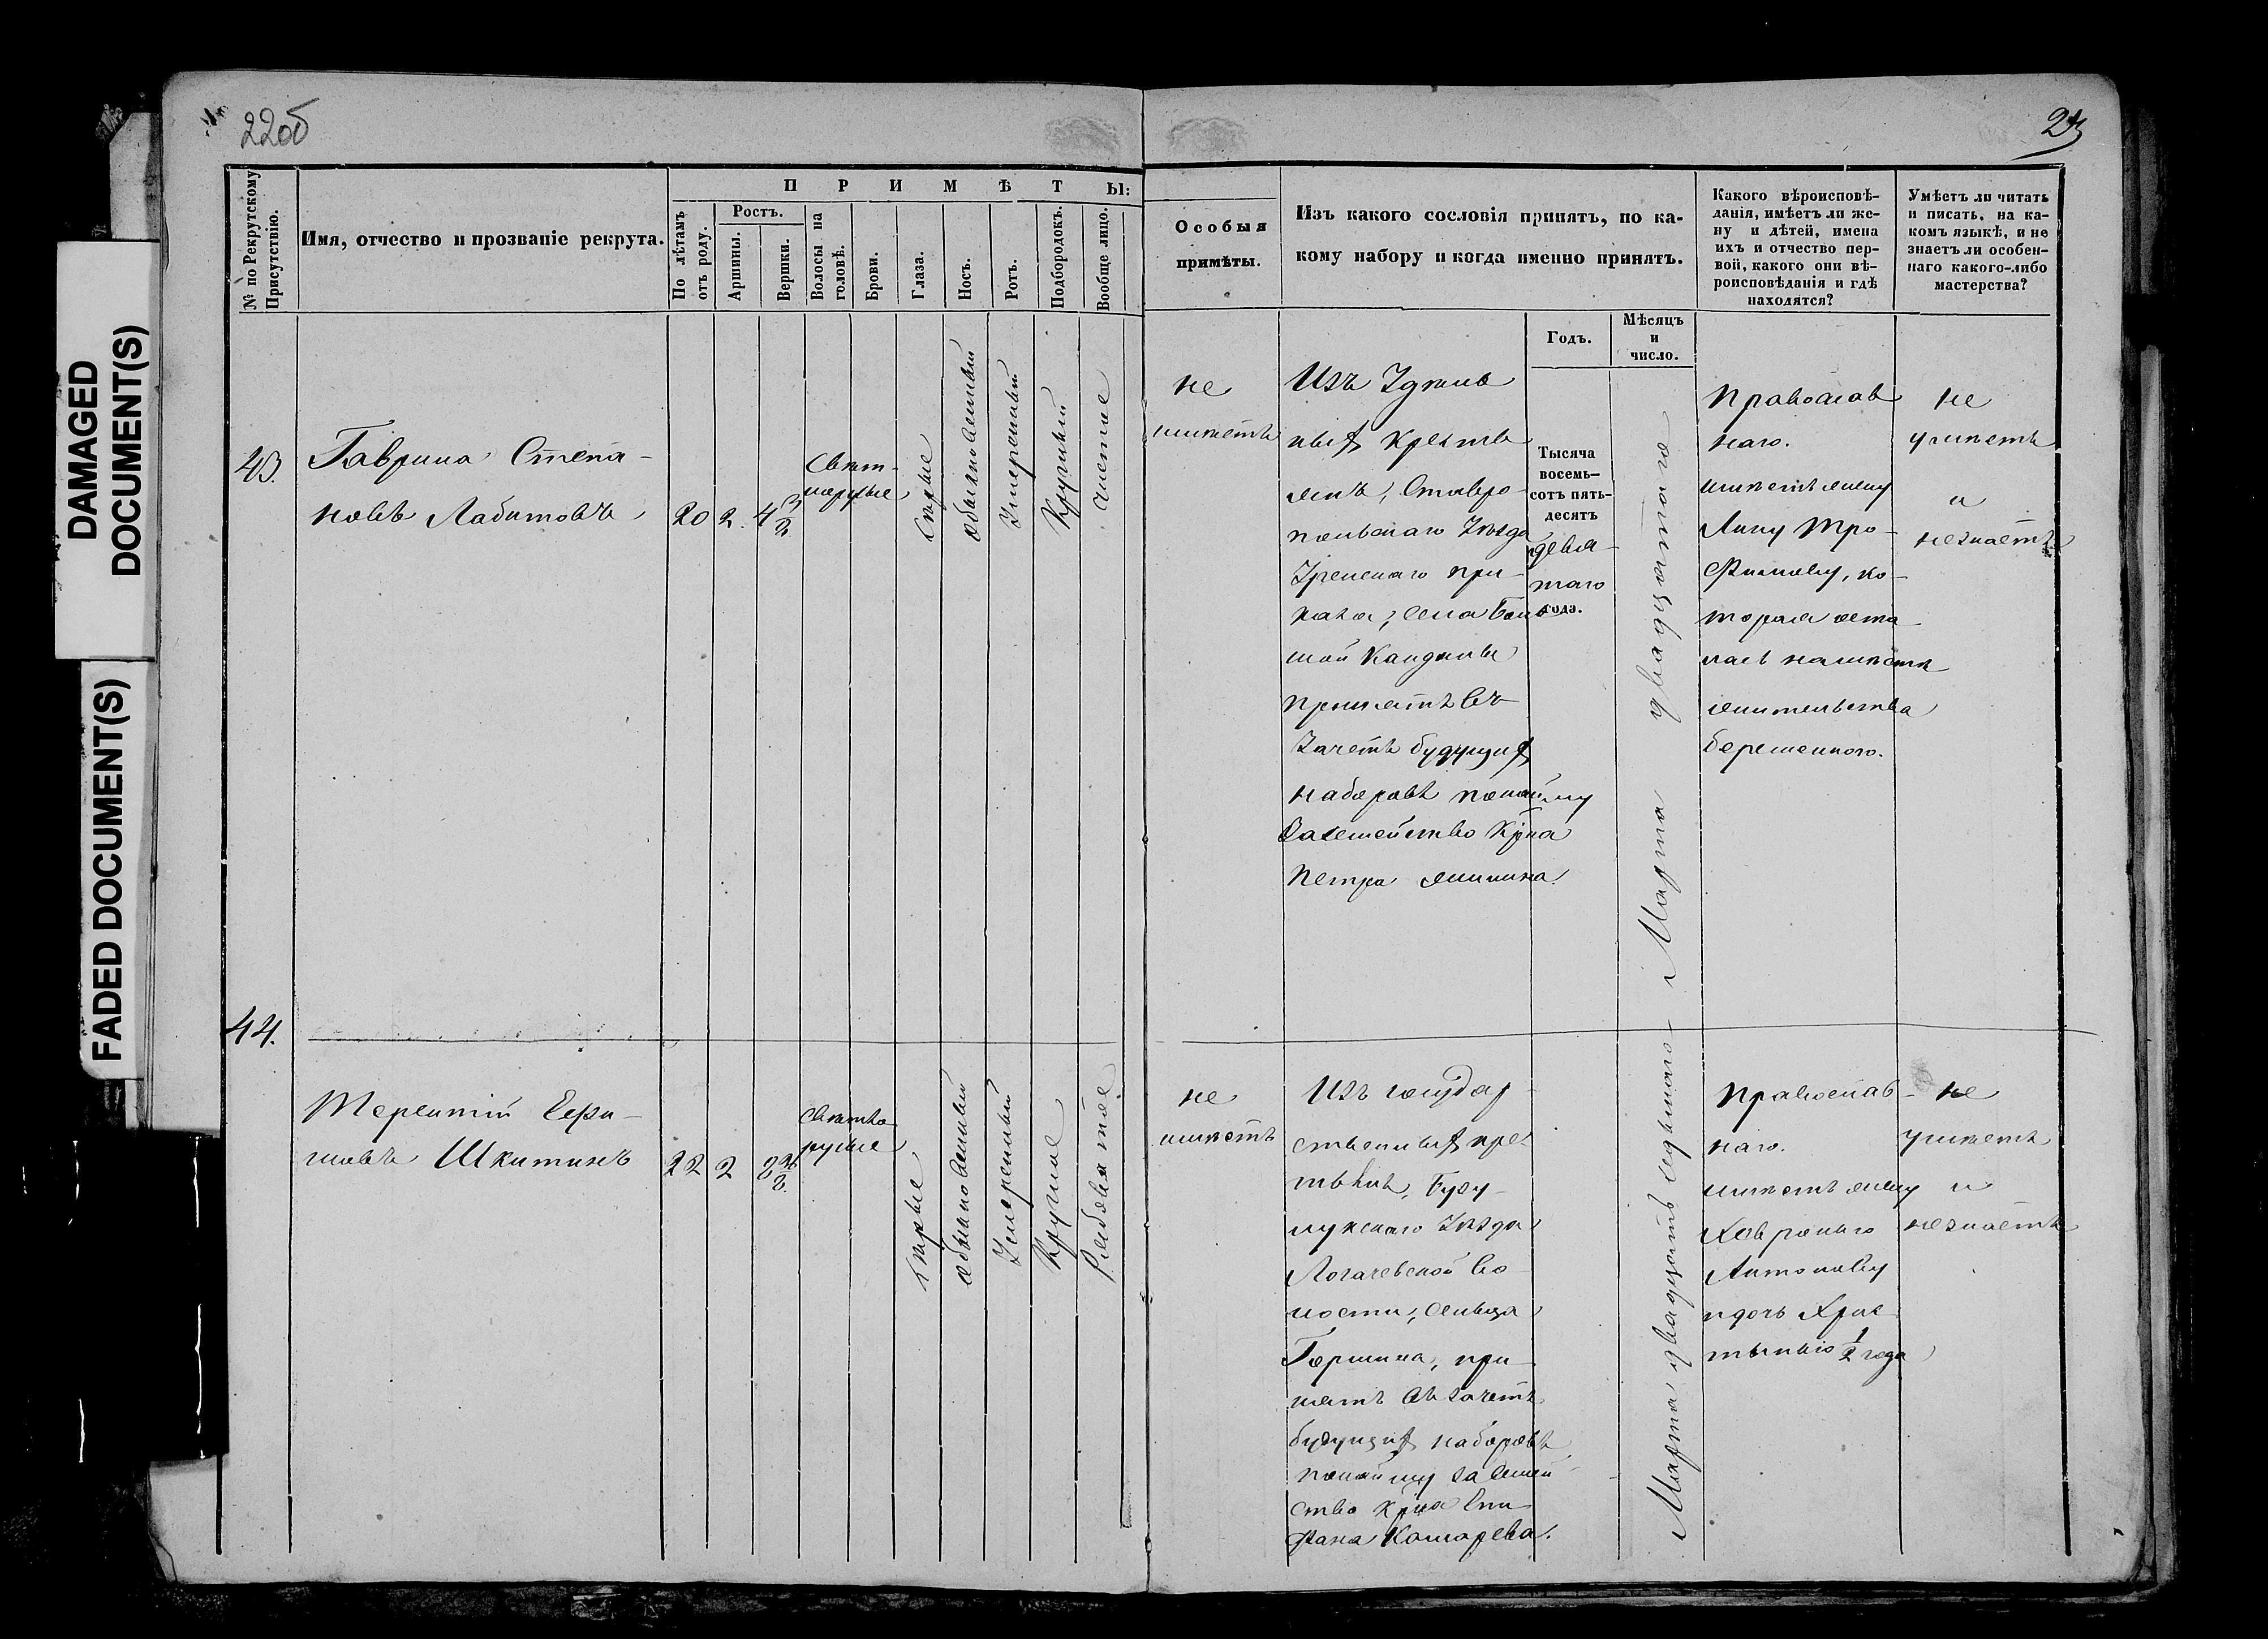 DAMAGED
DOCUMENT(S)
FADED DOCUMENT(S)
22об
23
№ по Рекрутскому
Присутствію.
Имя, отчество и прозваніе рекрута.
ПРИМѢТЫ:
По лѣтамъ
отъ роду.
Ростъ.
Аршины.
Вершки.
Волосы на
головѣ.
Брови.
Глаза.
Носъ.
Ротъ.
Подбородокъ.
Вообще лицо.
Особыя
примѣты.
Изъ какого сословія принятъ, по ка-
кому набору и когда именно принятъ.
Годъ.
Мѣсяцъ
и
число.
Какого вѣроисповѣ-
данія, имѣетъ ли же-
ну и дѣтей, имена
ихъ и отчество пер-
вой, какого они вѣ-
роисповѣданія и гдѣ
находятся?
Умѣетъ ли читать
и писать, на ка-
комъ языкѣ, и не
знаетъ ли особен-
наго какого-либо
мастерства?
43.
Гаврила Степа-
новъ Лабитовъ
20
2.
4 3/8
Свѣт-
лорусые
Сѣрые
обыкновенный
Умѣренный
Круглый
чистое
не
имѣетъ
Изъ Удѣль
ныхъ Крестьянъ, Ставро-
польскаго Уѣзда
при-
каза, села Боль
шой Кандалы
принятъ въ
Зачетъ будущихъ
наборовъ по найму
За семейство Кр-на
Петра
Тысяча
восемь-
сотъ пять-
десятъ
девя-
таго
года.
Марта двадцатаго
Православ
наго.
имѣетъ жену
Анну Тро-
фимову, ко-
торая оста
лась на мѣстѣ
жительства
беременною.
не
умѣетъ
и
незнаетъ
44.
Терентій Ефи-
мовъ Шкитинъ
22
2
Свѣтло
русые
Сѣрые
обыкновенный
Умѣренный
Круглое
Рябоватое
не
имѣетъ
Изъ государ
ственныхъ кре-
стьянъ, Бузу-
лукскаго Уѣзда
Логачевской Во
лости, сельца
Горшина, при-
нятъ въ зачетъ
будущихъ наборовъ
по найму за семей
ство кр-на Епи-
фана Кошарева.
Марта двадцать седьмаго
Православ-
наго.
имѣетъ жену
Хавронью
Антонову
и дочь Хрис
тинью 1/2 года
не
умѣетъ
и
незнаетъ